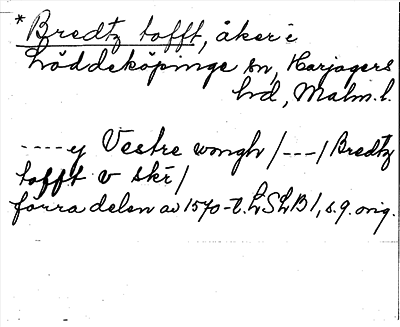 *Bredtz tofft, åker i
Löddeköpinge sn, Harjagers
hd, Malm. l.
----ej Vestre wongh /---/ Bredtz
tofft v skr/
förra delen av 1570-t. LSLB 1, s. 9. orig.